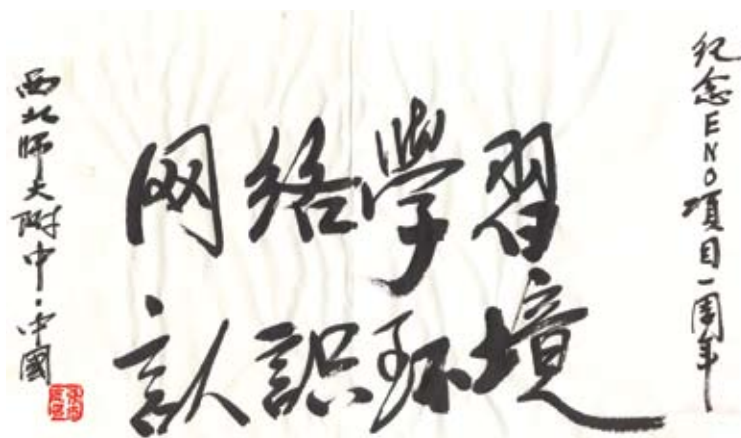 纪念ENO項目一周年
网络學習
認識环境
西北师大附中·中國